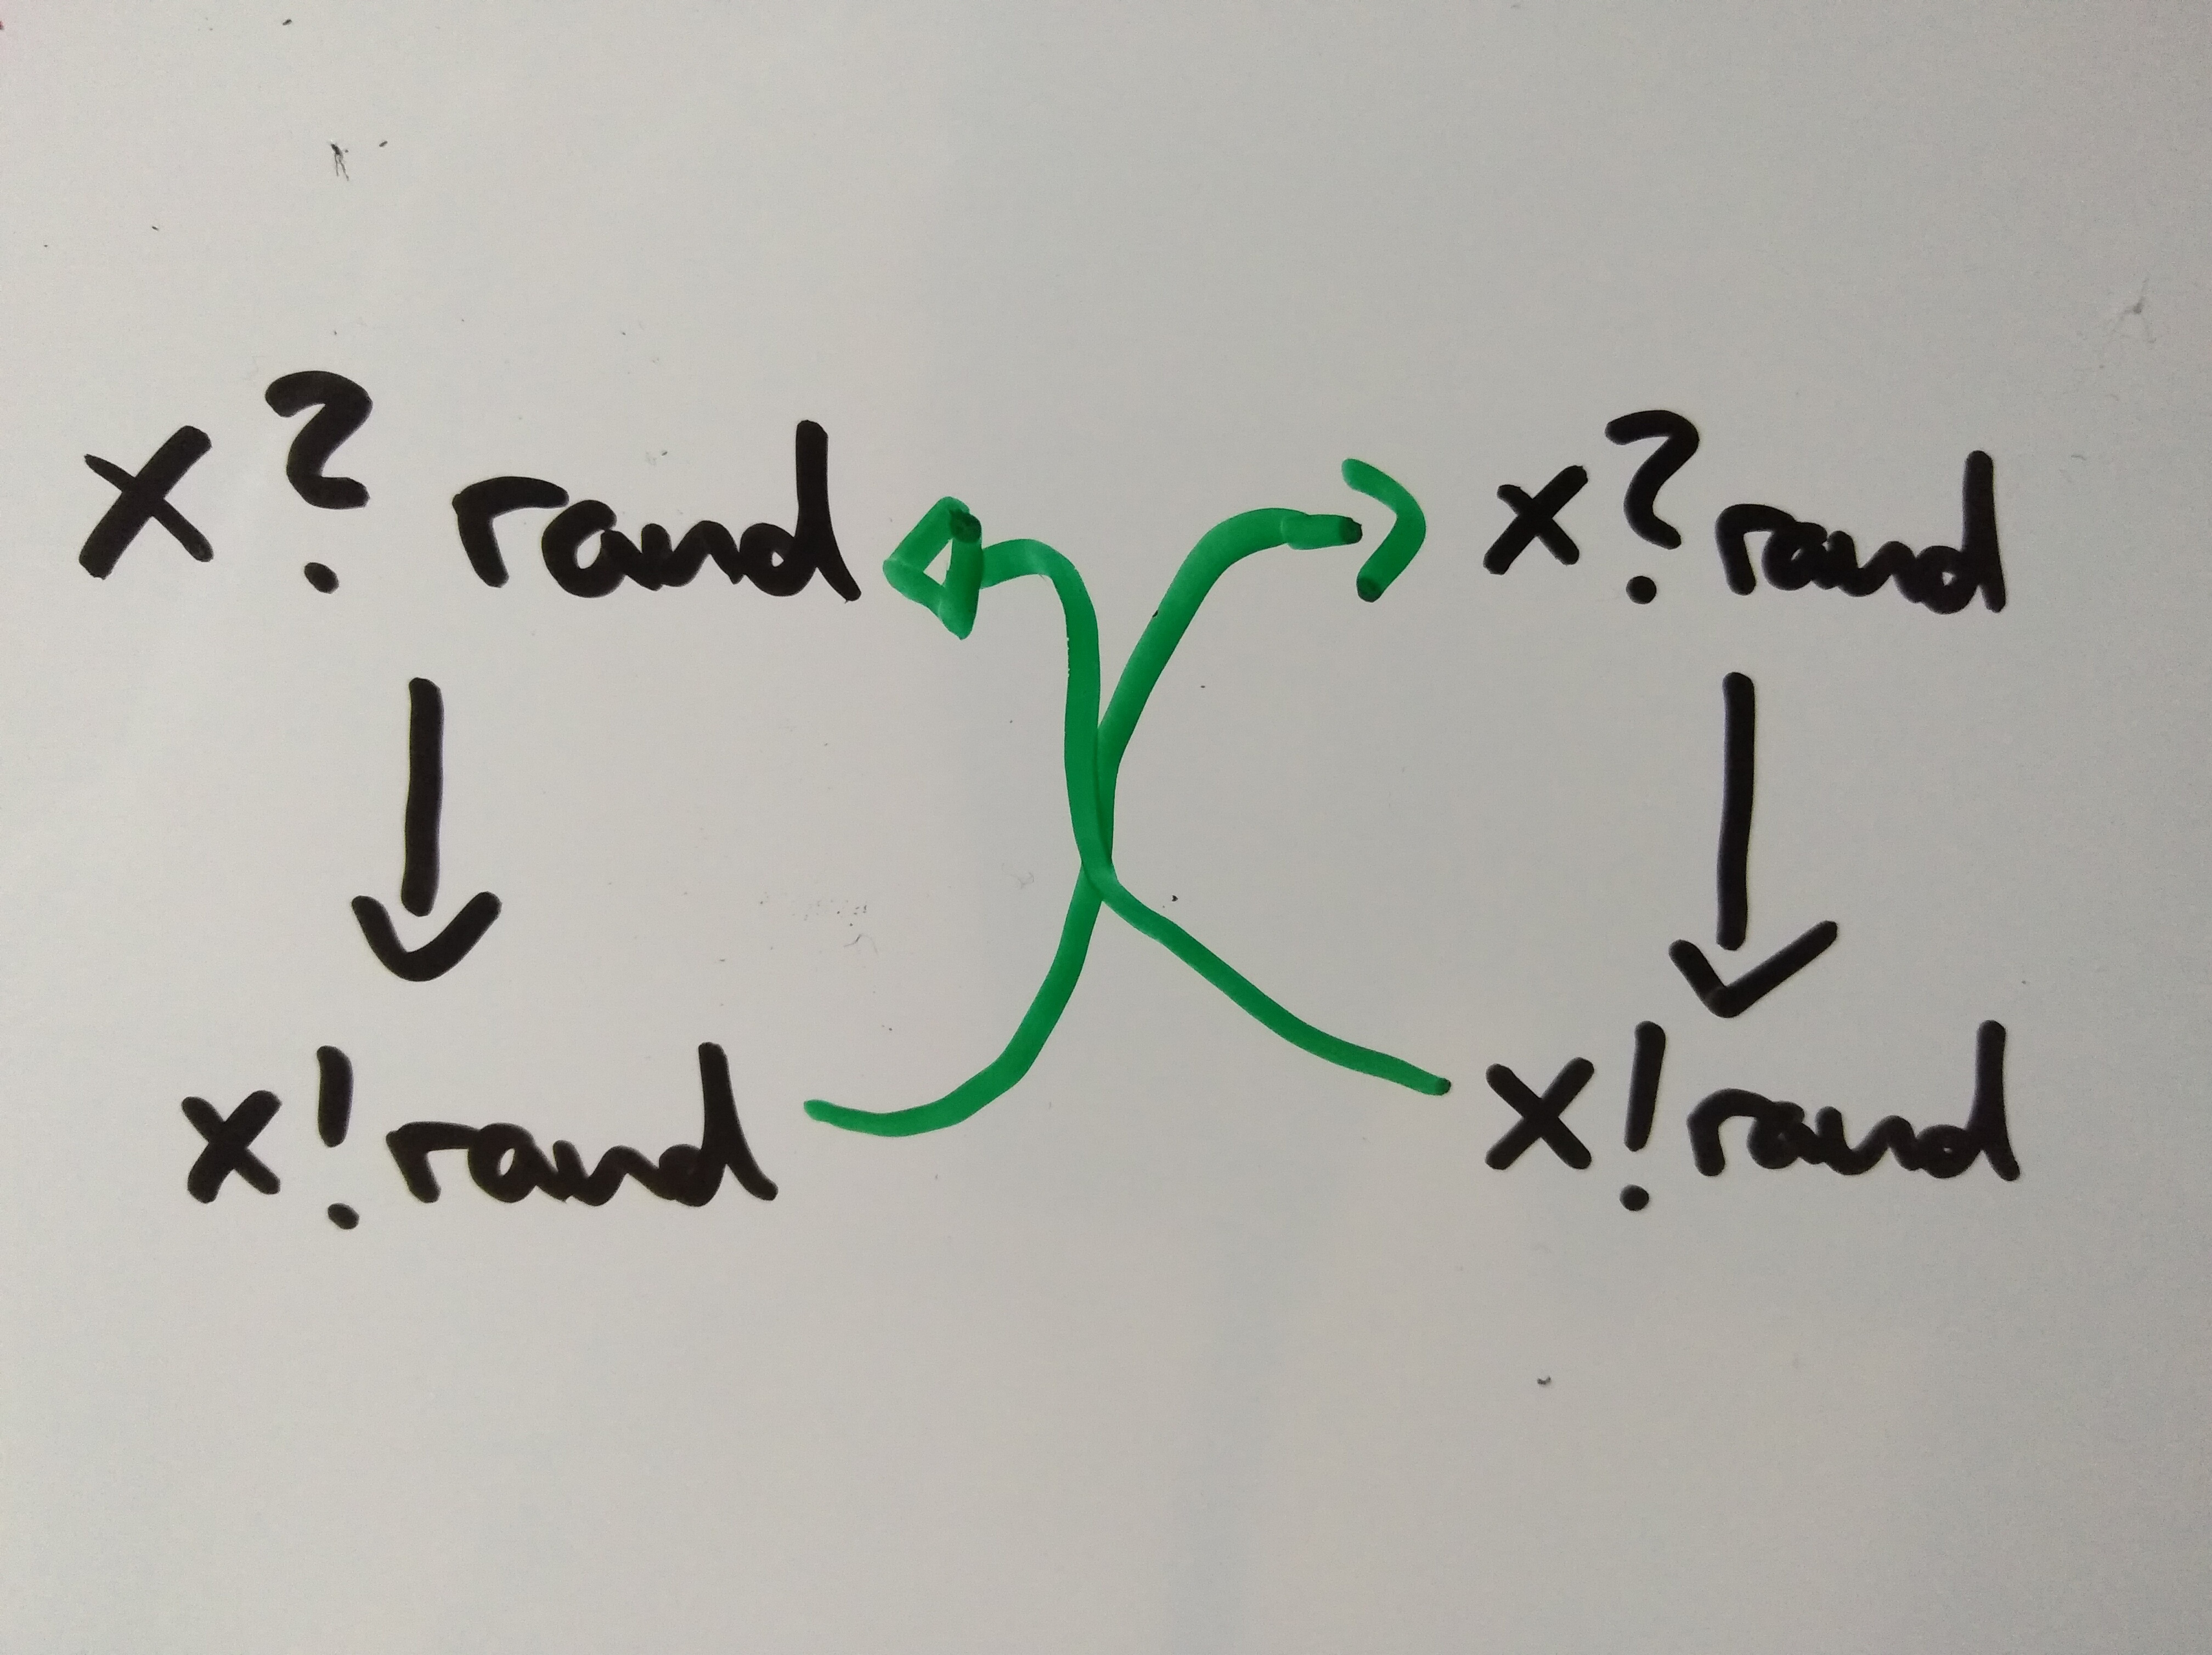 x? rand x?rand
x!rand x!rand